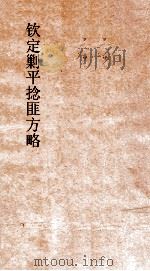 钦定剿平捻匪方略
mtoou.info